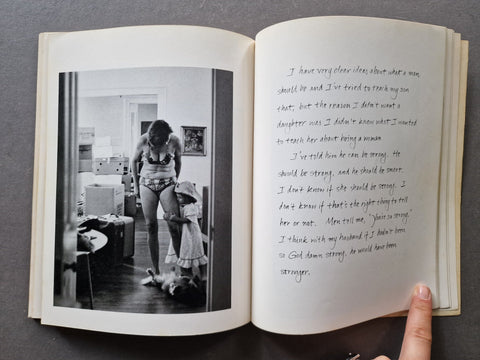 I have very clear ideas about what a man
should be and I've tried to teach my son
that, but the reason I didn't want a
daughter was I didn't know what I wanted
to teach her about being a woman.
I've told him he can be strong. He
should be strong, and he should be smart.
I don't know if she should be strong. I
don't know if that's the right thing to tell
her or not. Men tell me, "You're so strong."
I think with my husband if I hadn't been
so God damn strong, he would have been
stronger.